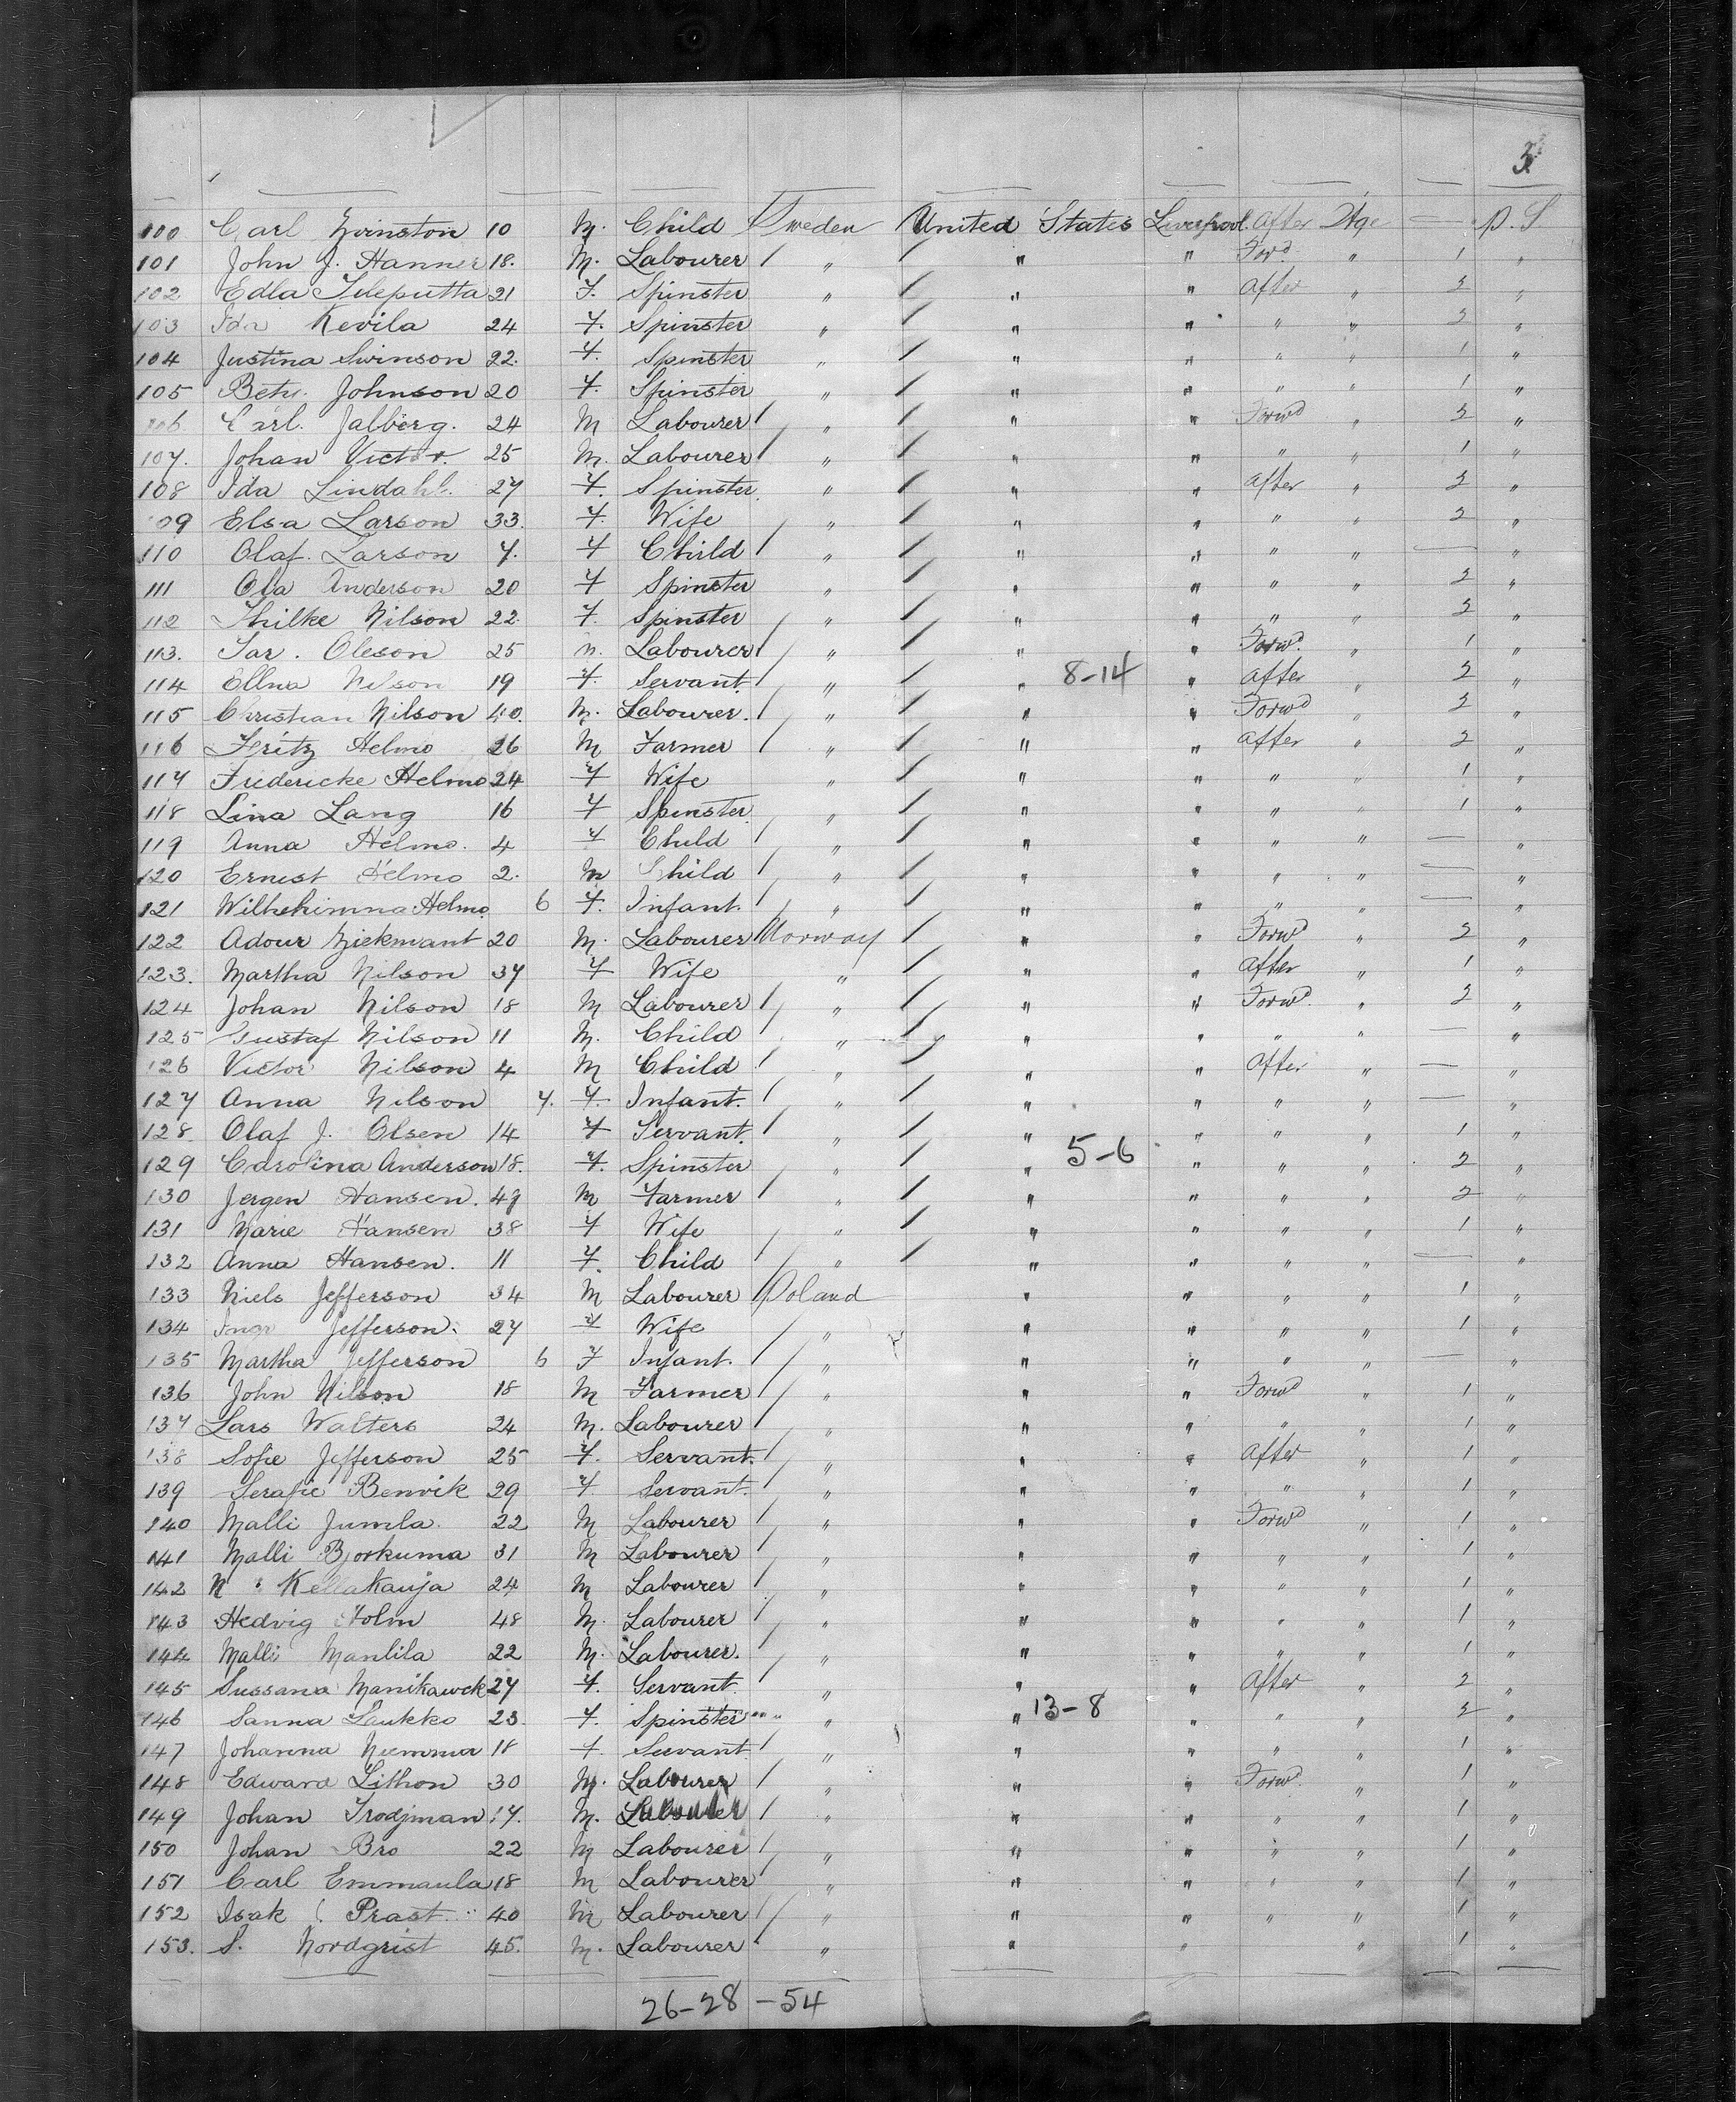 3
100 Carl Zvinston 10 M. Child Sweden United States Liverpool After Stge — p. S
101 John J. Hanner 18. M. Labourer / " / " " Forwd " 1 "
102 Edla 21 F. Spinster " / " " after " 2 "
103 Ida Kevila 24 F. Spinster " / " " " " 2 "
104 Justina Swinson 22. F. Spinster " / " " " " 1 "
105 Bety. Johnson 20 F. Spinster " / " " " " 1 "
106 Carl. Jalberg. 24 M Labourer / " / " " Forwd " 2 "
107. Johan Victor. 25 M. Labourer / " / " " " " 1 "
108 Ida Lindahl. 27 F. Spinster " / " " after " 2 "
109 Elsa Larson 33. F. Wife / " / " " " " 2 "
110 Olaf. Larson 7. F Child / " / " " " " — "
111 Ola Anderson 20 F Spinster " / " " " " 2 "
112 Thilke Nilson 22. F. Spinster / " / " " " " 2 "
113. Jar. Oleson 25 M. Labourer / " / " " Forwd. " 1 "
114 Ellna Nelson 19 F. Servant. / " / " 8-14 " after " 2 "
115 Christian Nilson 40. M. Labourer. / " / " " Forwd " 2 "
116 Fritz Helmo 26 M Farmer / " / " " after " 2 "
117 Fredericke Helmo 24 F Wife " / " " " " 1 "
118 Lina Lang 16 F Spinster. / " / " " " " 1 "
119 Anna Helmo. 4 F Child / " / " " " " — "
120 Ernest Helmo 2. M Child / " / " " " " — "
121 Wilhehimna Helmo. 6 F. Infant. / " / " " " " — "
122 Adour Ziekmant 20 M. Labourer Norway / " " Forwd " 2 "
123. Martha Nilson 37 F Wife " / " " after " 1 "
124 Johan Nilson 18 M Labourer / " / " " Forwd. " 2 "
125 Gustaf Nilson 11 M. Child / " / " " " " — "
126 Victor Nilson 4 M Child / " / " " After " — "
127 Anna Nilson 7. F. Infant. / " / " " " " — "
128. Olaf J. Olsen 14 F Servant. / " / " " " " 1 "
129 Carolina Anderson 18. F. Spinster " / " 5-6 " " " 2 "
130 Jergen Hansen. 49 M Farmer / " / " " " " 2 "
131 Marie Hansen 38 F Wife " / " " " " 1 "
132 Anna Hansen. 11 F. Child / " / " " " " — "
133 Niels Jefferson 34 M Labourer Poland " " " " 1 "
134 Jefferson. 27 F Wife / " " " " " 1 "
135 Martha Jefferson 6 F Infant. / " " " " " — "
136 John Nilson 18 M Farmer / " " " Forwd " 1 "
137 Lars Walters 24 M. Labourer / " " " " " 1 "
138 Sofie Jefferson 25 F. Servant. / " " " after " 1 "
139 Serafie Benvik 29 F Servant. / " " " " " 1 "
140 Malli Jumla. 22 M Labourer / " " " Forwd " 1 "
141 Malli Bjorkuma 31 M Labourer / " " " " " 1 "
142 N Kellakauja 24 M Labourer / " " " " " 1 "
143 Hedvig Holm 48 M. Labourer / " " " " " 1 "
144 Malli Manlila 22 M. Labourer. / " " " " " 1 "
145 Sussana Manikawck 27 F. Servant / " " " After " 2 "
146 Sanna Laukko 23. F. Spinster " " 13-8 " " " 2 "
147 Johanna 18 F. Servant / " " " " " 1 "
148 Edward Lithon 30 M. Labourer / " " " Forwd " 1 "
149 Johan Trodjman 17. M. Labourer / " " " " " 1 "
150 Johan Bro 22 M Labourer / " " " " " 1 "
151 Carl Emmaula 18 M Labourer / " " " " " 1 "
152 Isak Prast 40 M Labourer / " " " " " 1 "
153. S. Nordgrist 45. M. Labourer / " " " " 1 "
26-28-54